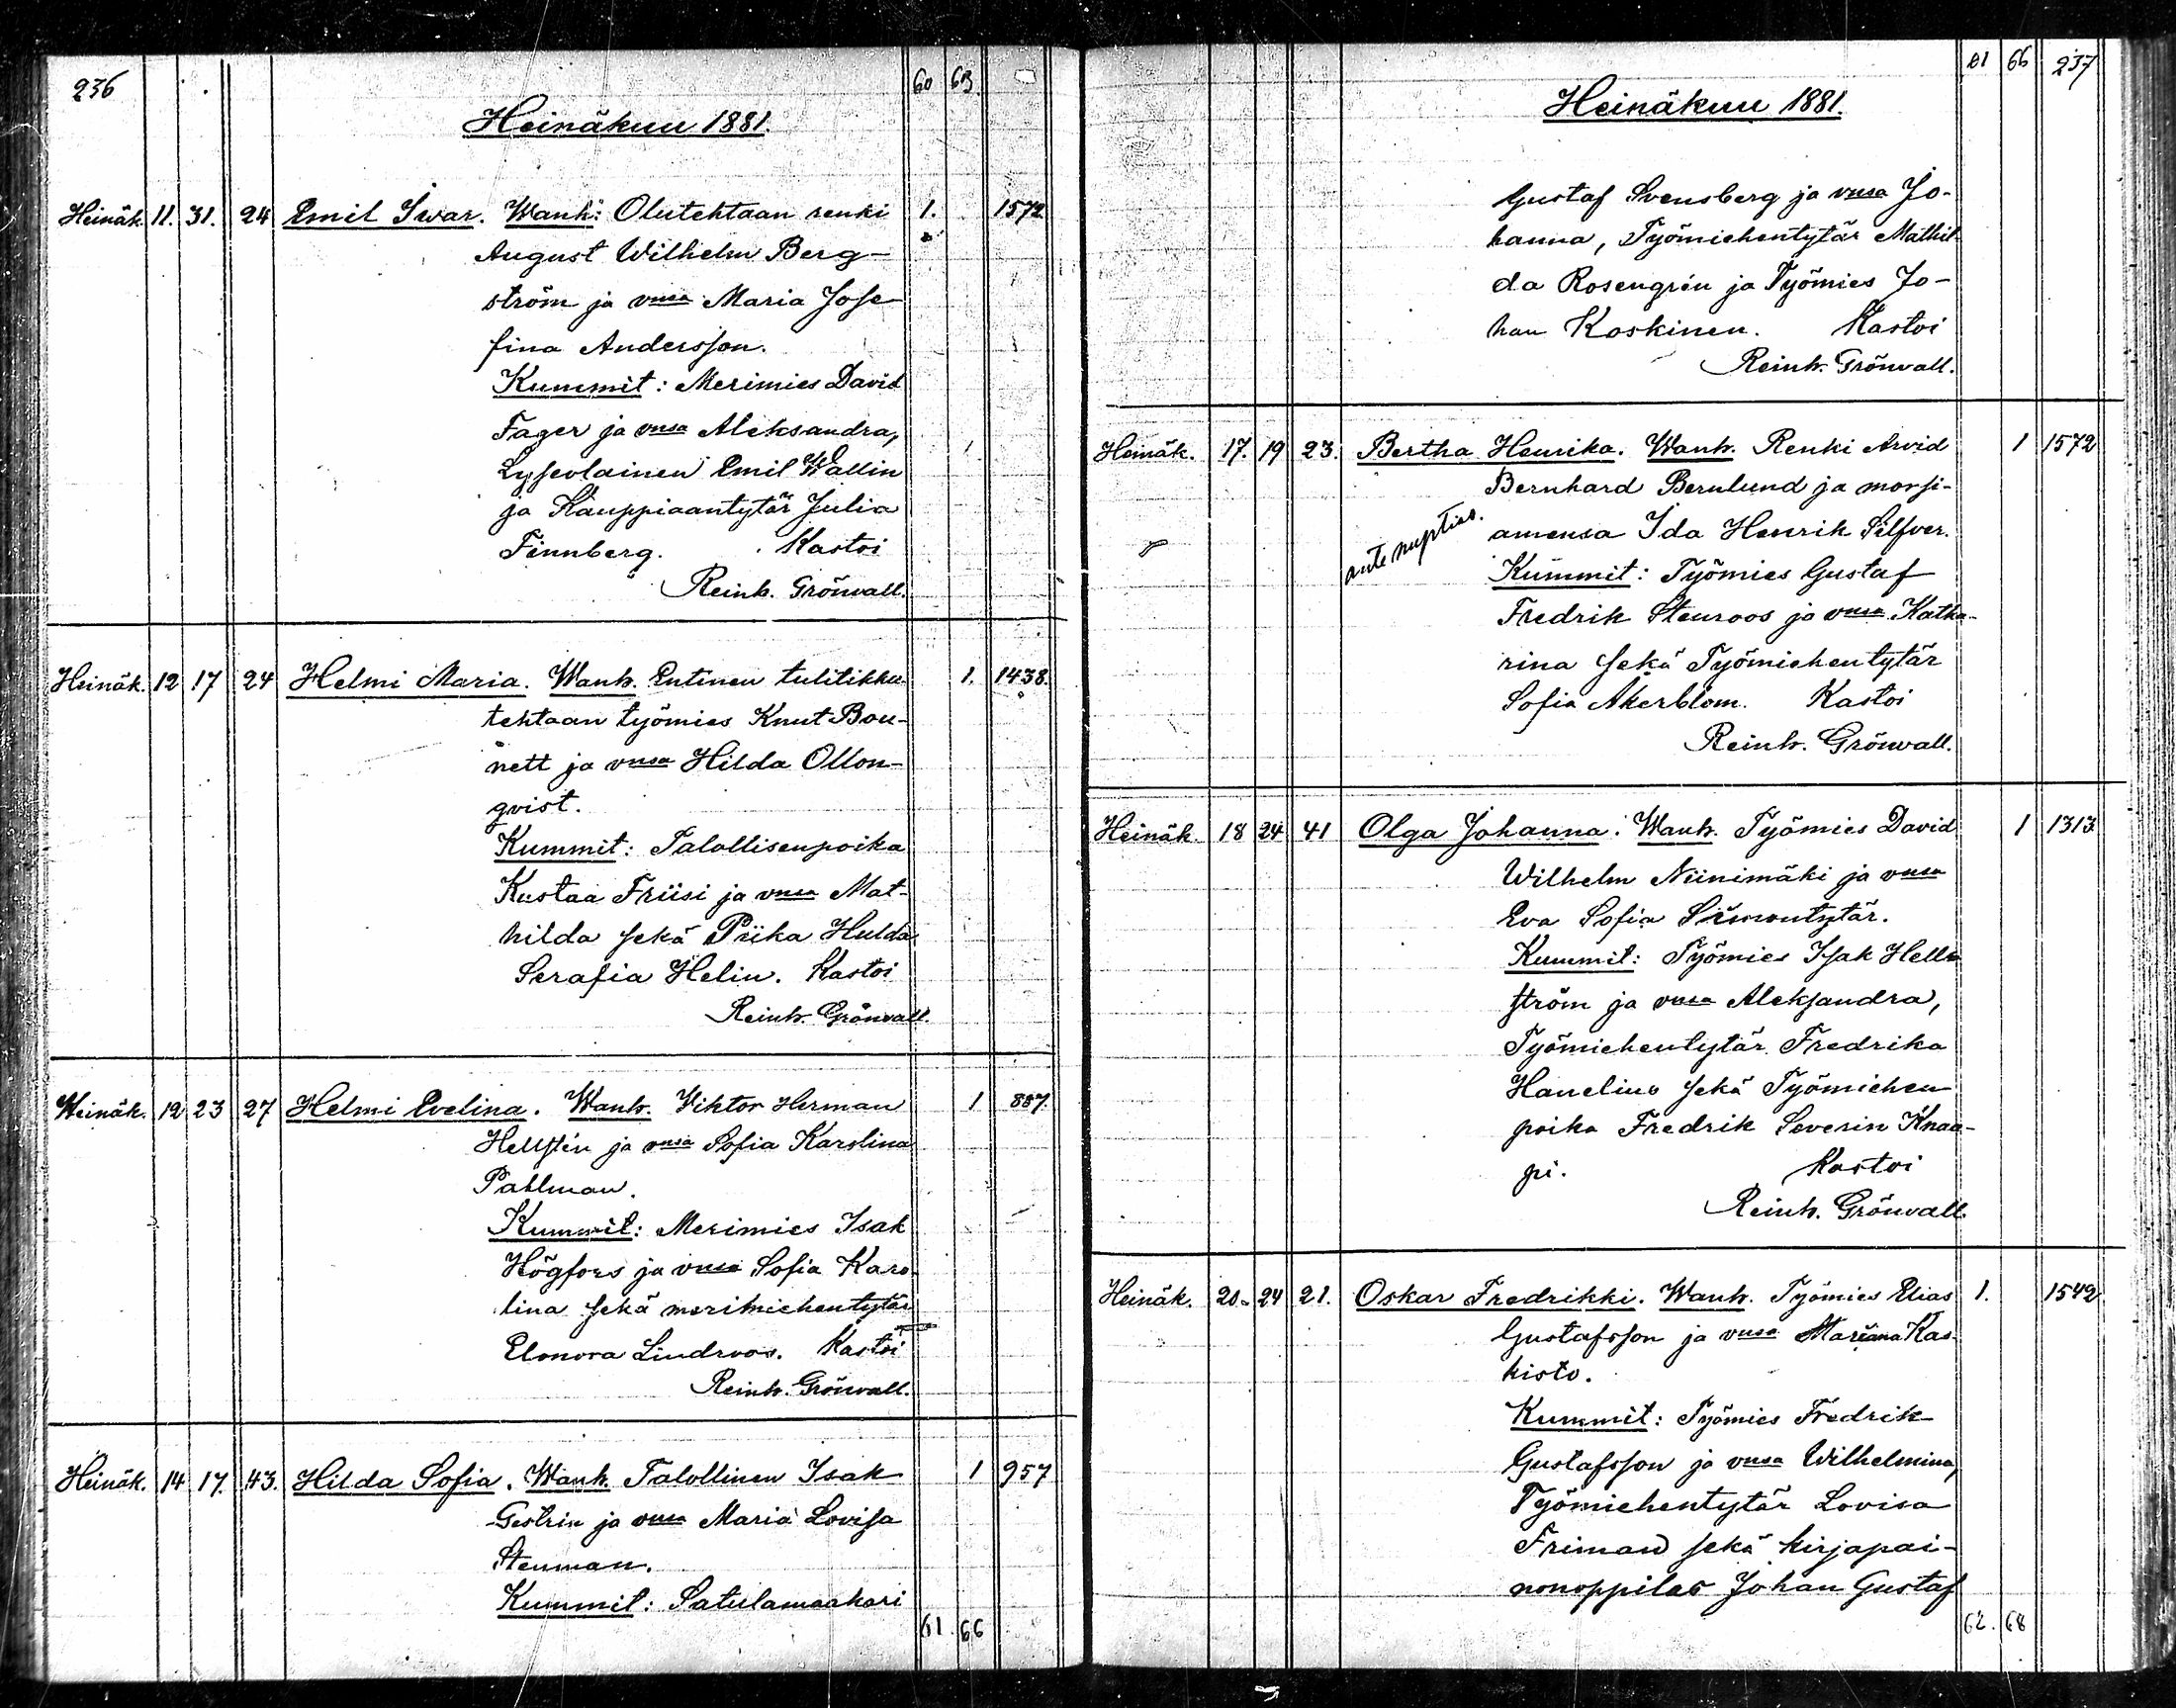 236 60 63
Heinäkuu 1881.
Heinäk. 11. 31. 24 Emil Iwar. Wanh: Olutehtaan renki 1. 1572
August Wilhelm Berg-
ström ja vmsa Maria Jose
fina Andersson.
Kummit: Merimies David
Fager ja vmsa Aleksandra,
Lyseolainen Emil Wallin
ja Kauppiaantytär Julia
Finnberg. Kastoi
Reinh. Grönvall.
Heinäk. 12 17 24 Helmi Maria. Wanh. Entinen tulitikku 1. 1438.
tehtaan työmies Knut Bon-
nett ja vmsa Hilda Ollon-
qvist.
Kummit: Talollisenpoika
Kustaa Friisi ja vmsa Mat-
hilda sekä Piika Hulda
Serafia Helin. Kastoi
Reinh. Grönvall.
Heinäk. 12 23 27 Helmi Evelina. Wanh. Viktor Herman 1 887
Hellstén ja vmsa Sofia Karolina
Pahlman.
Kummit: Merimies Isak
Högfors ja vmsa Sofia Karo-
lina sekä merimiehentytär
Elonora Lindroos. Kastoi
Reinh. Grönvall.
Heinäk. 14 17. 43. Hilda Sofia. Wanh. Talollinen Isak 1 957
Gestrin ja vmsa Maria Lovisa
Stenman.
Kummit: Satulamaakari
61. 66
61 66 237
Heinäkuu 1881.
Gustaf Svensberg ja vmsa Jo-
hanna, Työmiehentytär Mathil-
da Rosengrén ja Työmies Jo-
han Koskinen. Kastoi
Reinh. Grönvall.
Heinäk. 17. 19 23. Bertha Henrika. Wanh. Renki Arvid 1 1572
Bernhard Bernlund ja morsi-
ante nuptias. amensa Ida Henrik Silfver.
Kummit: Työmies Gustaf
Fredrik Stenroos ja vmsa Katha-
rina sekä Työmiehentytär
Sofia Åkerblom. Kastoi
Reinh. Grönvall.
Heinäk. 18 24 41 Olga Johanna. Wanh. Työmies David 1 1313
Wilhelm Niinimäki ja vmsa
Eva Sofia Simontytär.
Kummit: Työmies Isak Hell-
ström ja vmsa Aleksandra,
Työmiehentytär Fredrika
Hanelius sekä Työmiehen
poika Fredrik Severin Knaa-
pi. Kastoi
Reinh. Grönvall.
Heinäk. 20. 24 21. Oskar Fredrikki. Wanh. Työmies Elias 1. 1542
Gustafsson ja vmsa Mariana Kas-
kisto.
Kummit: Työmies Fredrik
Gustafsson ja vmsa Wilhelmina,
Työmiehentytär Lovisa
Friman sekä kirjapai-
nonoppilas Johan Gustaf
62. 68